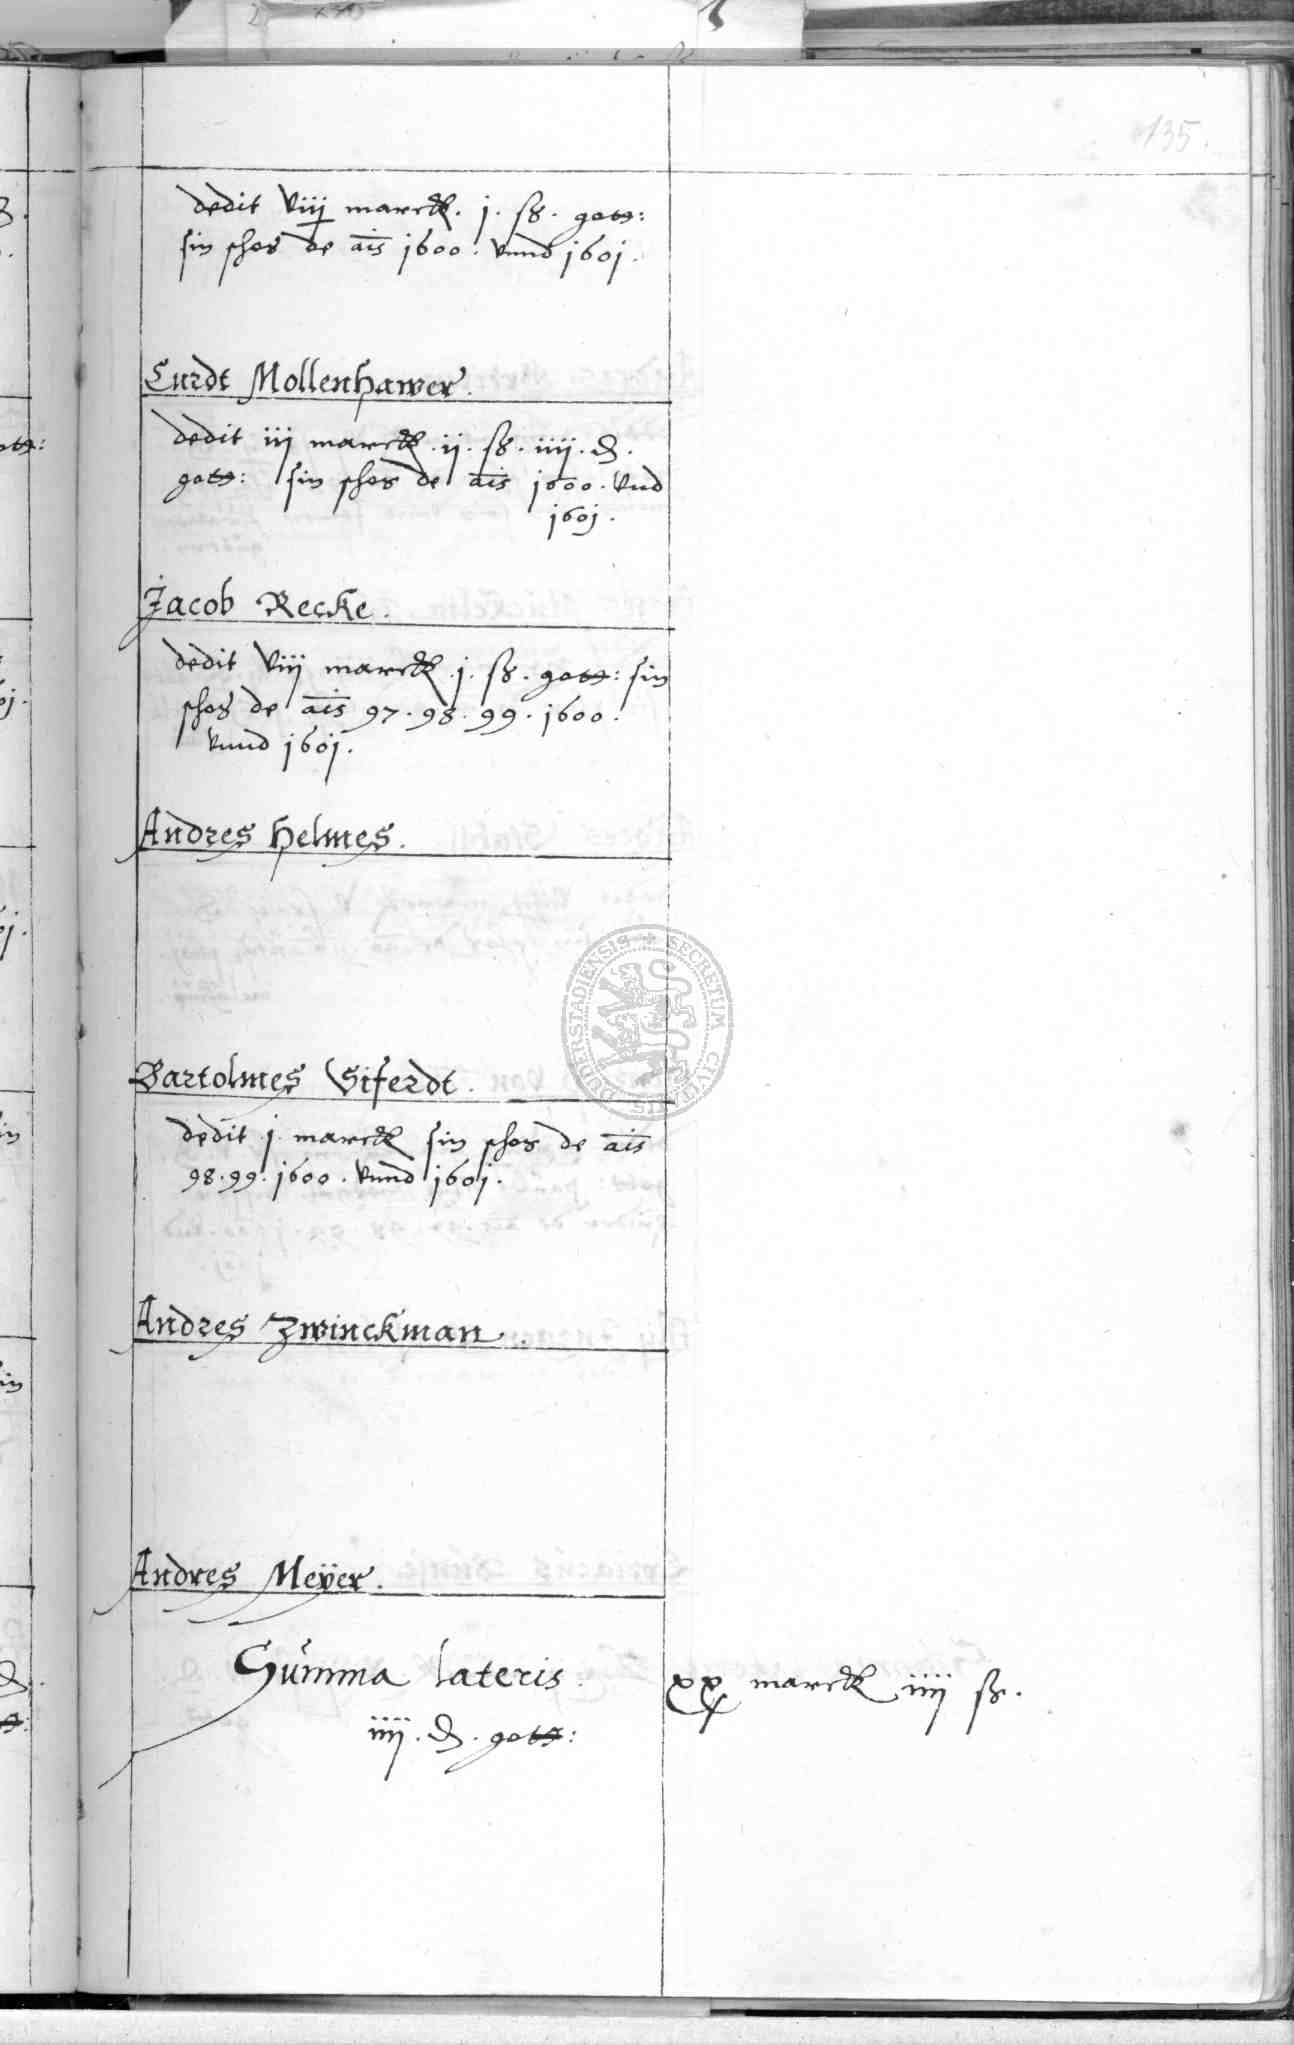 135.
dedit viij marck. j. ß. gott:
sin schos de ais 1600. vnnd 1601.
Curdt Mollenhawer.
dedit iij marck. ij. ß. iiij. d.
gott: sin schos de ais 1600. vnd
1601.
Jacob Recke.
dedit viij marck. j. ß. gott: sin
schos de ais 97. 98. 99. 1600.
vnnd 1601.
Andres Helmes.
SECRETUM CIVITATIS DUDERSTADIENSIS
Bartolmes Siferdt.
dedit j. marck sin schos de ais
98. 99. 1600. vnnd 1601.
Andres Zwinckman.
Andres Meÿer.
Summa lateris. xx marck iiij ß.
iiij. d. gott: